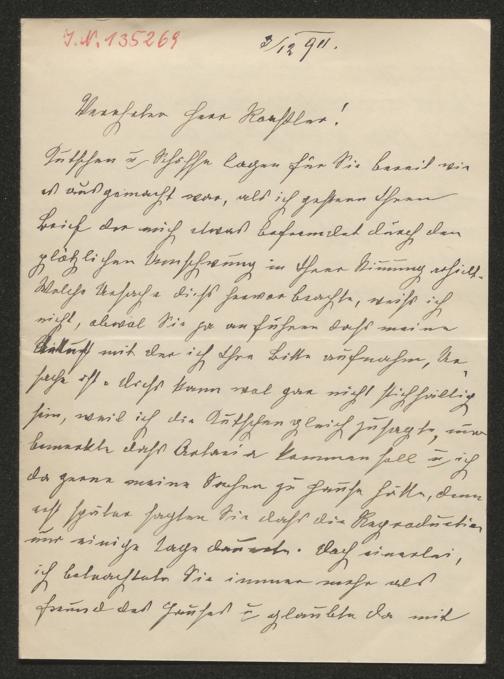 J.N. 135269
3/12 911.
Verehrter Herr Roessler!
Kutschen u Schiffe lagen für Sie bereit wie
es ausgemacht war, als ich gestern Ihren
Brief der mich etwas befremdet durch den
plötzlichen Umschwung in Ihrer Stimmung erhielt.
Welche Ursache dies hervorbrachte, weiß ich
nicht, obwol Sie ja anführen dass meine
mit der ich Ihre Bitte aufnahm, Ur-
sache ist. dies kann wol gar nicht stichhältig
sein, weil ich die Kutschen gleich zusagte, nur
bemerkte dass kommen soll u ich
da gerne meine Sachen zu Hause hätte, denn
erst später sagten Sie dass die Reproduction
nur einige Tage dauerte. Doch einerlei,
ich betrachtete Sie immer mehr als
Freund des Hauses u glaubte da mit